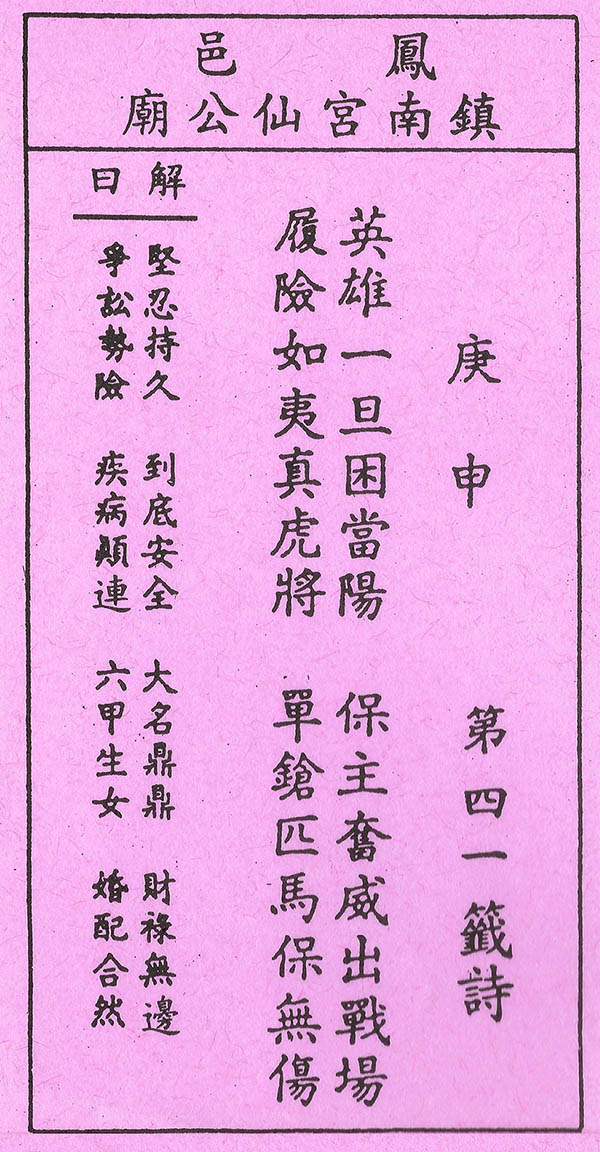 鳳邑
鎮南宮仙公廟
庚申　第四一籤詩
英雄一旦困當陽　保主奮威出戰場
履險如夷真虎將　單鎗匹馬保無傷
解曰
堅忍持久　到底安全　大名鼎鼎　財祿無邊
爭訟勢險　疾病顛連　六甲生女　婚配合然